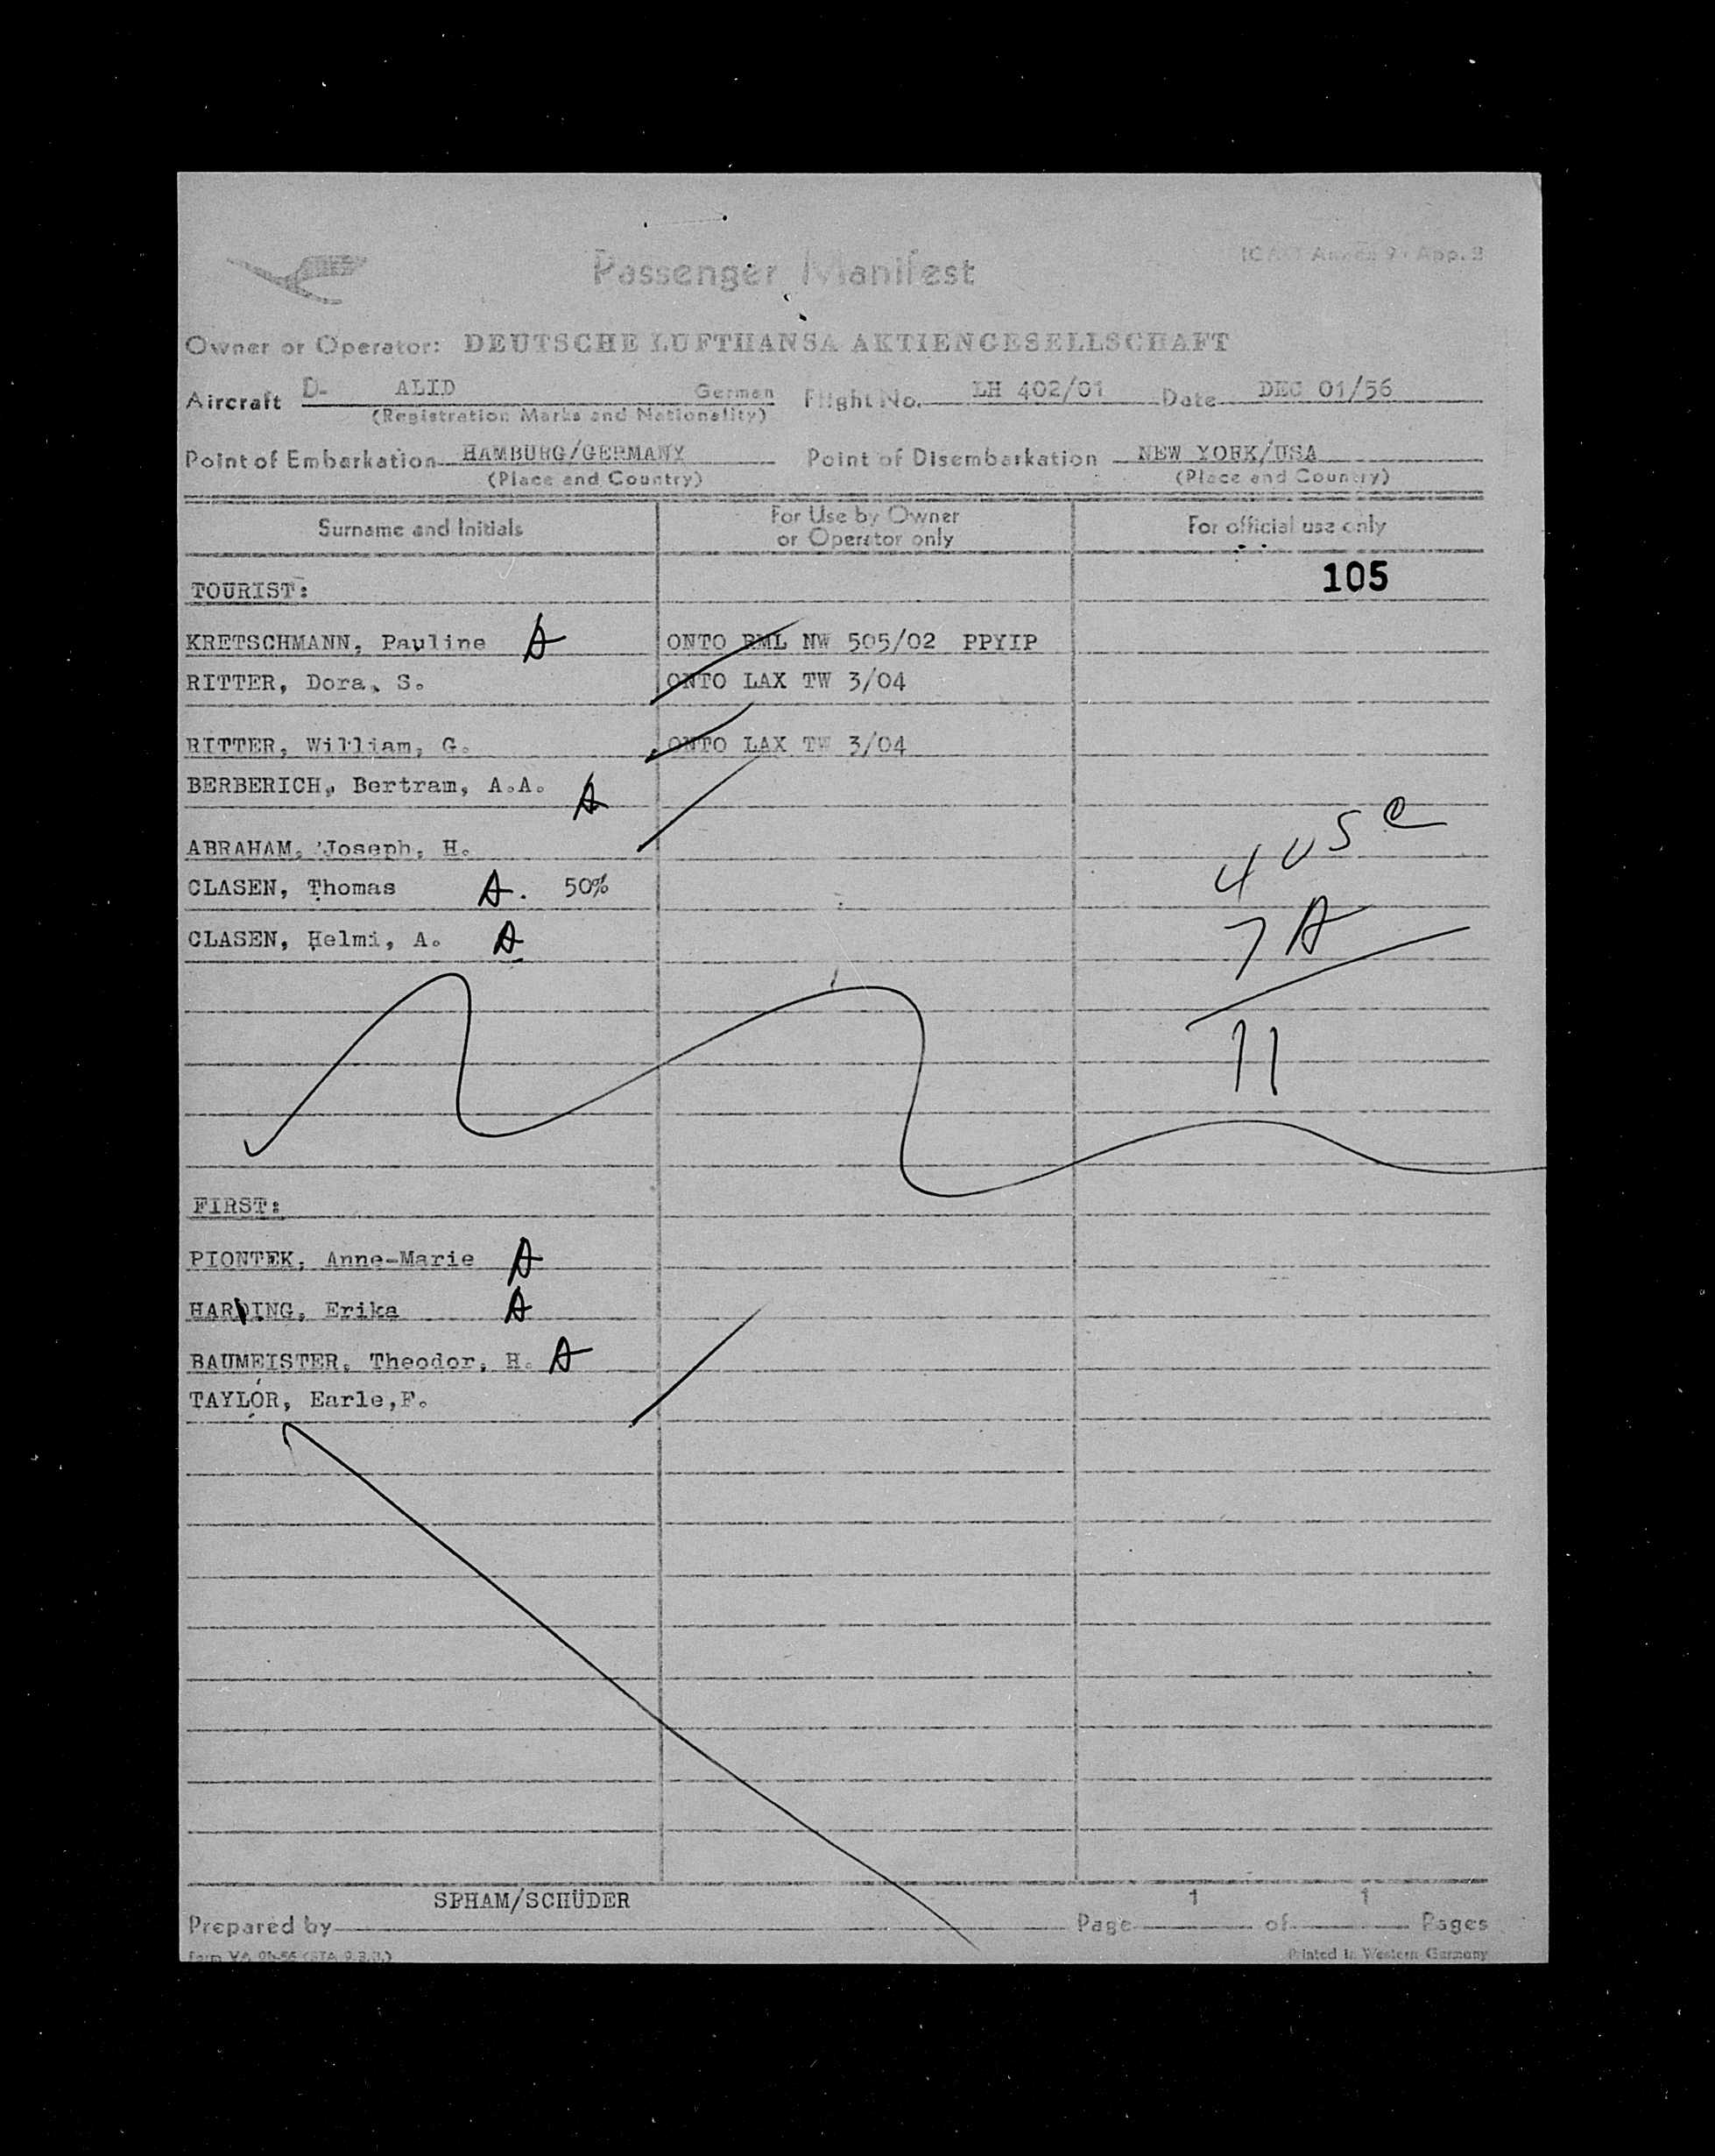 Passenger Manifest
ICAO Annex 9 - App. 3
Owner or Operator: DEUTSCHE LUFTHANSA AKTIENGESELLSCHAFT
Aircraft D- ALID German Flight No. LH 402/01 Date DEC 01/56
(Registration Marks and Nationality)
Point of Embarkation HAMBURG/GERMANY Point of Disembarkation NEW YORK/USA
(Place and Country) (Place and Country)
Surname and Initials For Use by Owner or Operator only For official use only
TOURIST: 105
KRETSCHMANN, Pauline A ONTO RML NW 505/02 PPYIP
RITTER, Dora, S. ONTO LAX TW 3/04
RITTER, William, G. ONTO LAX TW 3/04
BERBERICH, Bertram, A.A. A
ABRAHAM, Joseph, H.
4 USC
CLASEN, Thomas A. 50%
7 A
CLASEN, Helmi, A. A
11
FIRST:
PIONTEK, Anne-Marie A
HARDING, Erika A
BAUMEISTER, Theodor, H. A
TAYLOR, Earle,F.
SPHAM/SCHÜDER 1 1
Prepared by Page of Pages
Printed in Western Germany